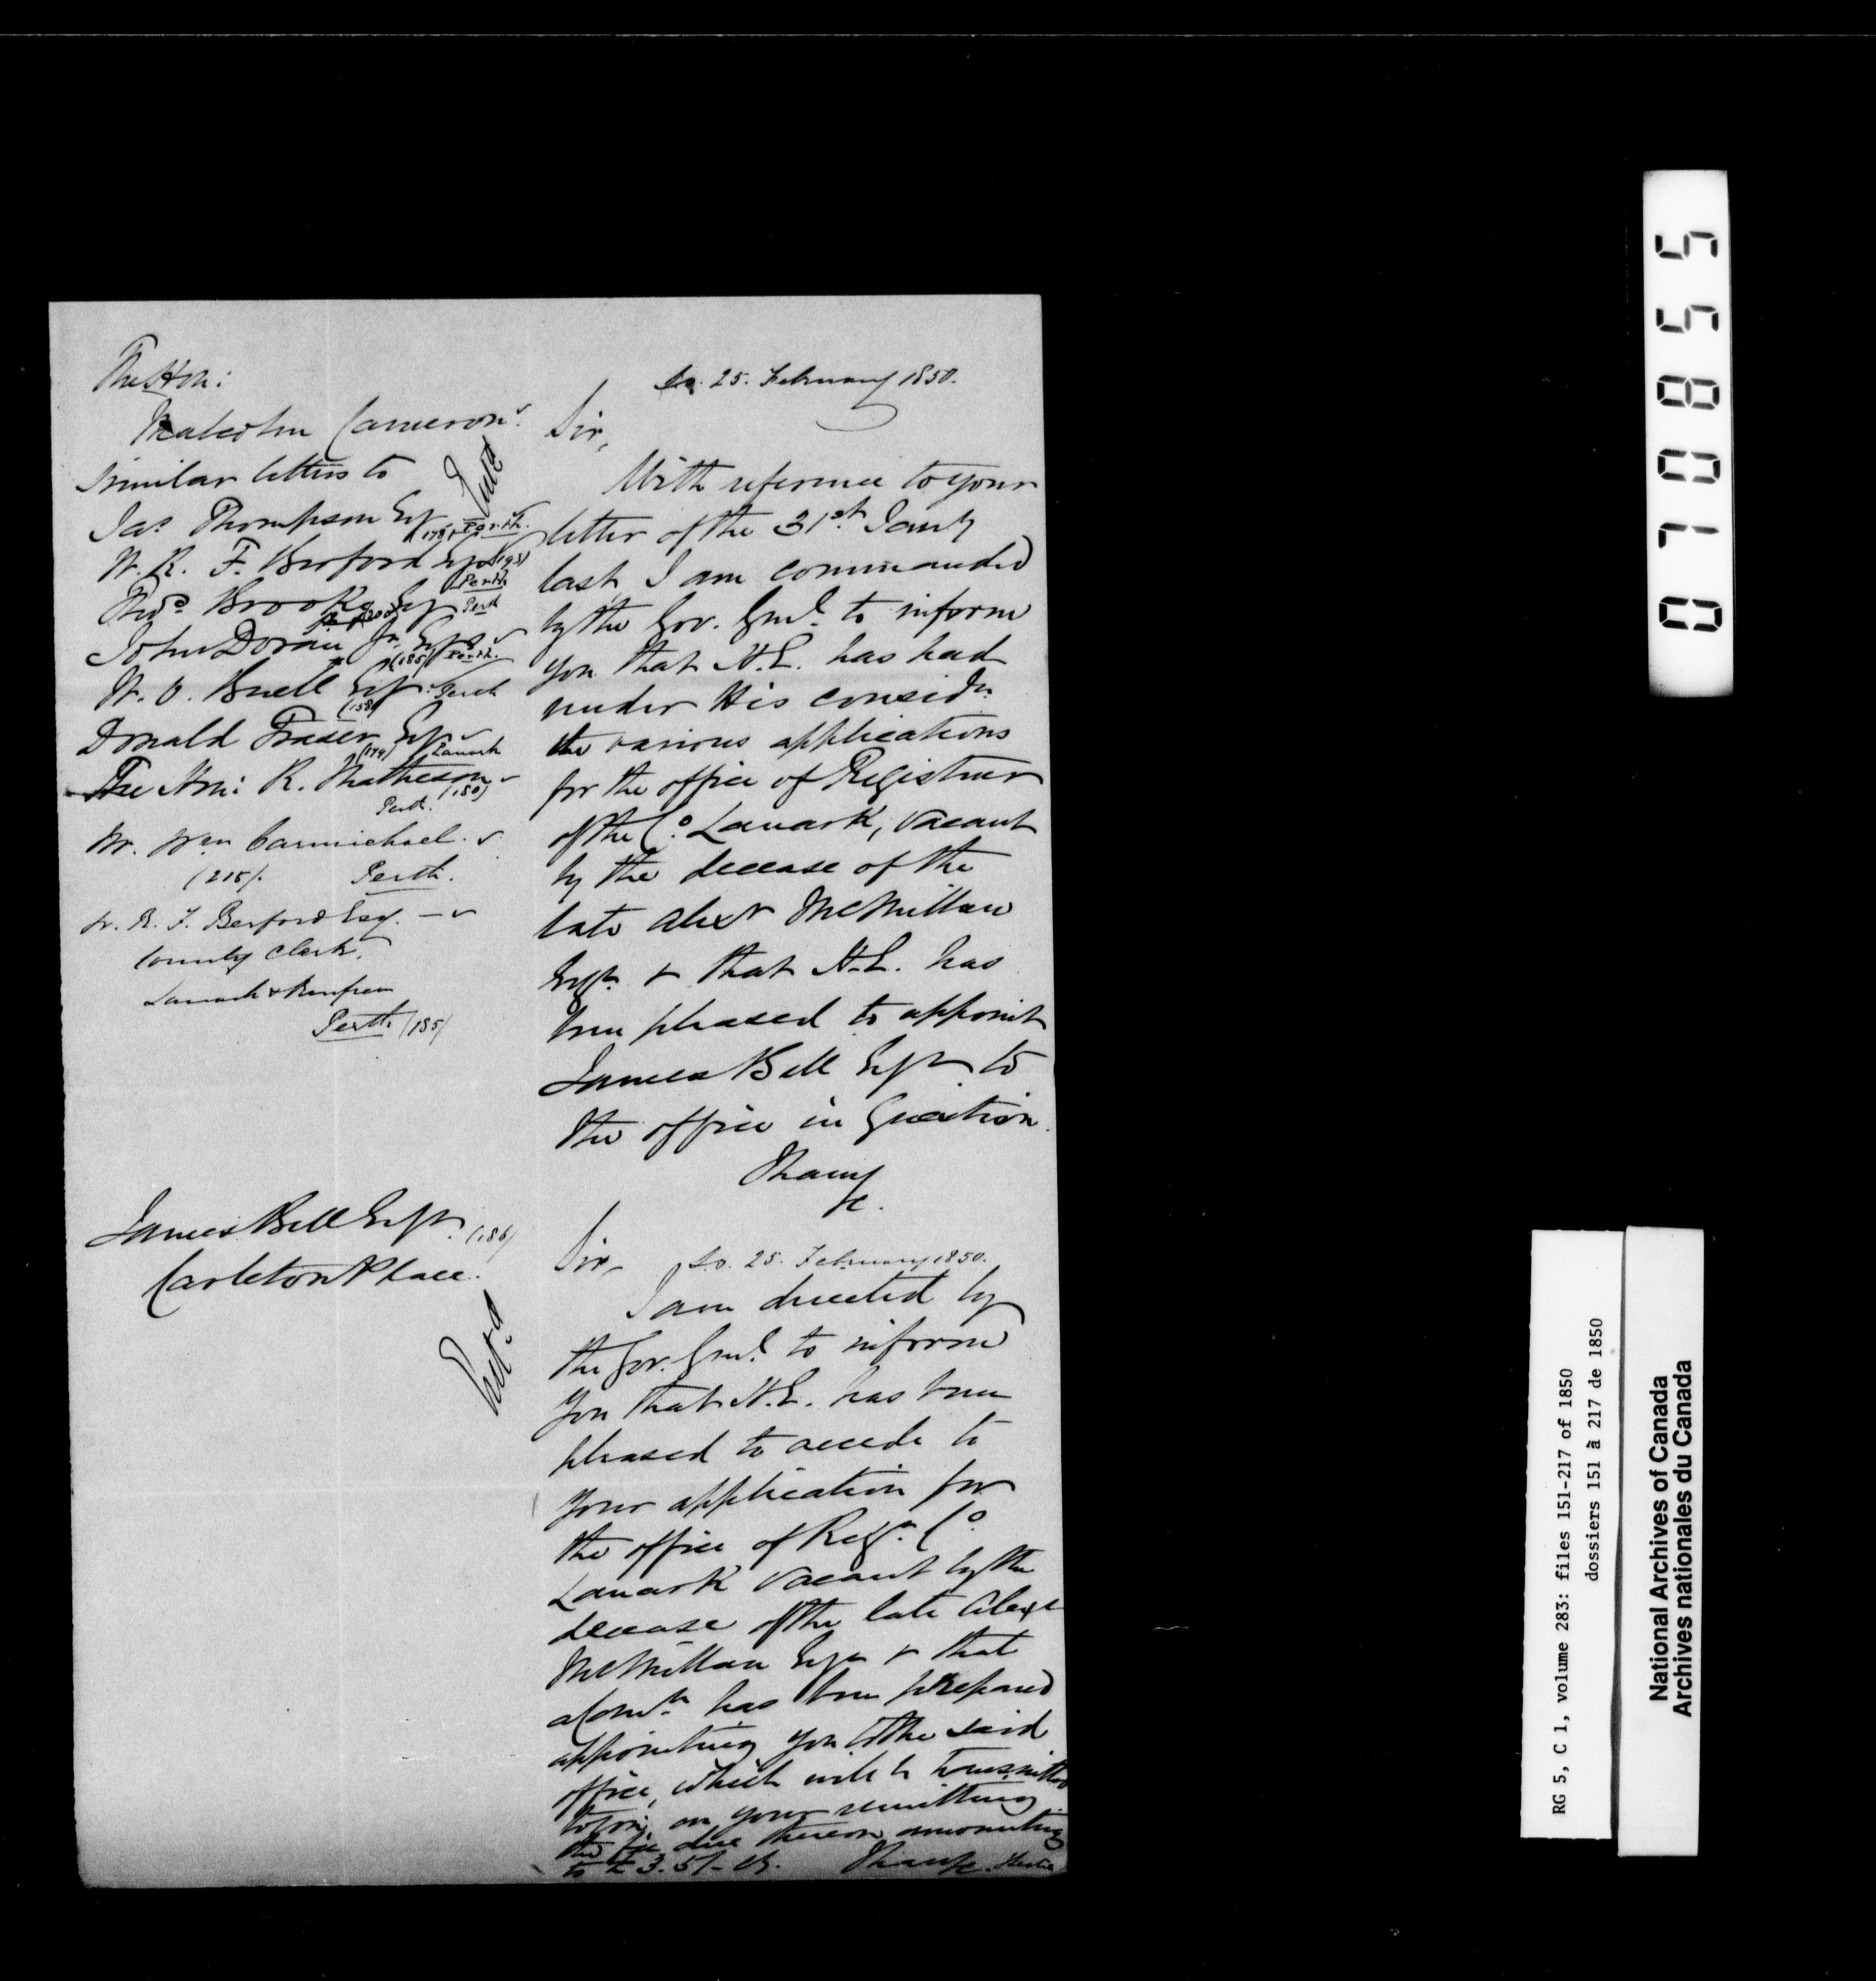 The Hon:
Malcolm Cameron
Similar letters to
Jas Thompson Esq Perth.
W. R. F. Berford Esq
Perth
Thos Brooke Esq Perth
John Doran Jr. Esq
(185) Perth.
W. O. Buell Esq. Perth
(158)
Donald Fraser Esq
(179) Lanark
The Hon: R. Matheson
Perth. (180)
Mr. Wm Carmichael.
(215). Perth.
W. R. F. Berford Esq.
County Clerk.
Lanark & Renfrew
Perth (185)
25. February 1850.
Sir,
With reference to your
letter of the 31st Jany
last, I am commanded
by the Gov. Genl. to inform
you that H.E. has had
under His considn
the various applications
for the office of Registrar
of the Co. Lanark, vacant
by the decease of the
late Alexr McMillan
Esqr. & that H.E. has
been pleased to appoint
James Bell Esqr to
the office in question.
I have
&c.
James Bell Esqr. (186)
Carleton Place.
Sir, S.O. 25. February 1850.
I am directed by
the Gov. Genl. to inform
you that H.E. has been
pleased to accede to
your application for
the office of Regr. Co.
Lanark vacant by the
decease of the late Alexr
McMillan Esqr & that
a Comn. has been prepared
appointing you to the said
office, which will be transmitted
to you, on your remitting
the fee due thereon amounting
to £3.5/- Cy. I have &c.
070855
RG 5, C 1, volume 283: files 151-217 of 1850
dossiers 151 à 217 de 1850
National Archives of Canada
Archives nationales du Canada